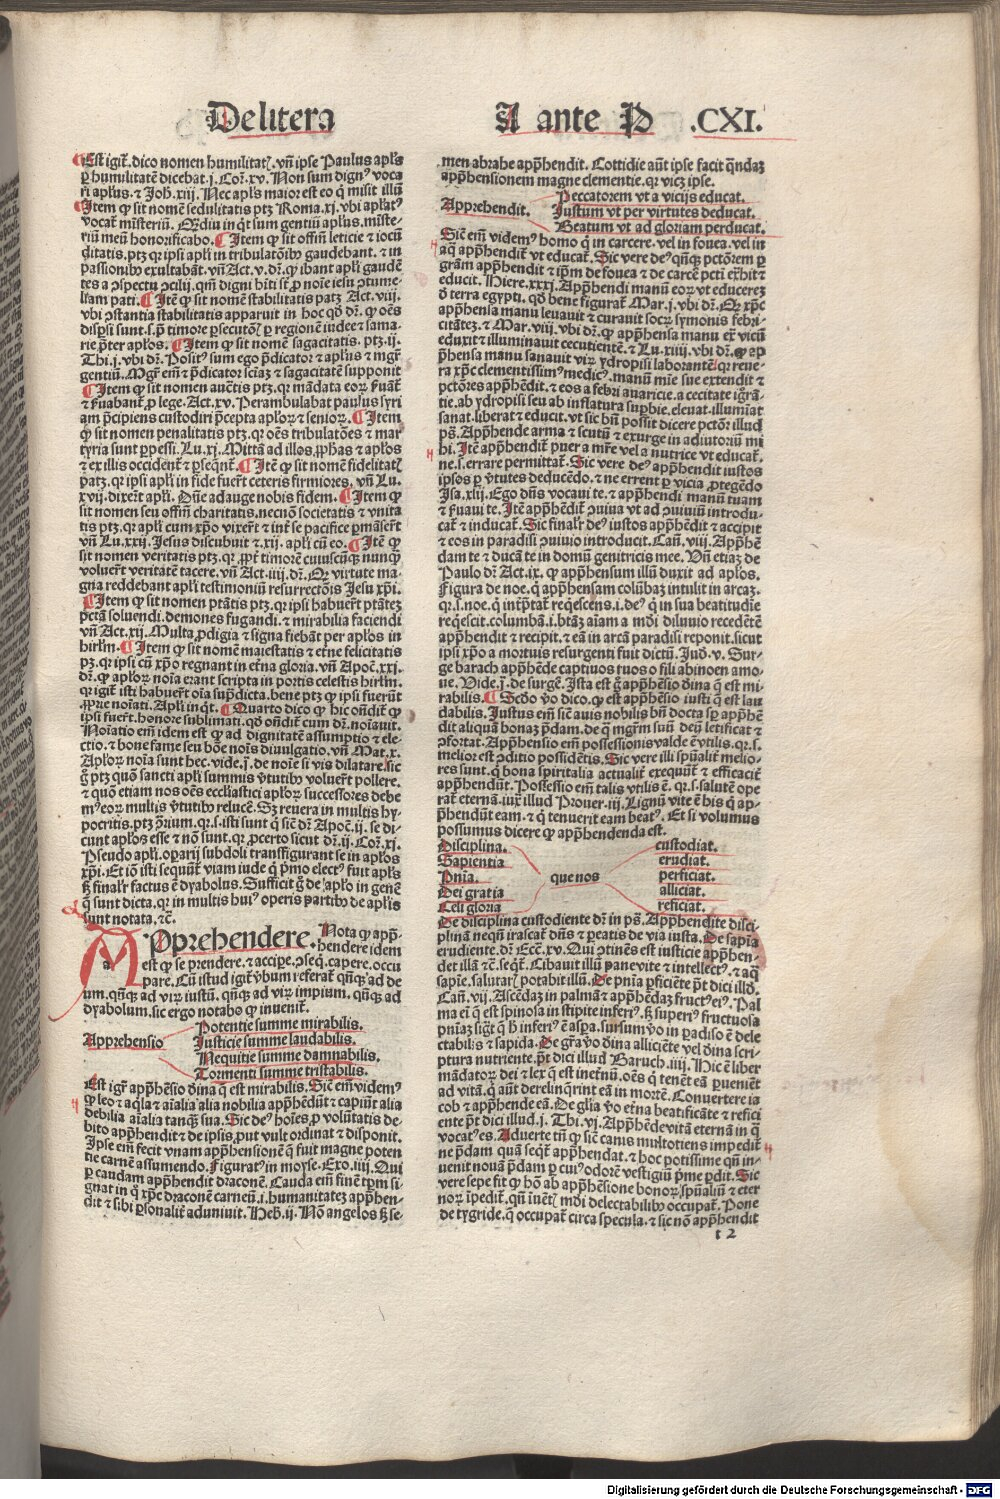 De litera A ante P .CXI.
Est igit̃. dico nomen humilitatꝭ. vñ ipse Paulus apl's
ꝑ humilitatẽ dicebat. j. Coꝝ. xv. Non sum dignꝰ voca
ri apl'us. ⁊ Joh. xiij. Nec apl's maior est eo q̃ misit illũ
Item ꝙ sit nomẽ sedulitatis ptꝫ Roma. xj. vbi apl'atꝰ
vocat̃ misteriũ. Q̃diu in q̃t sum gentiũ apl'us. miste-
riũ meũ honorificabo. Item ꝙ sit offim̃ leticie ⁊ iocũ
ditatis. ptꝫ qꝛ ipsi apl'i in tribulatõibꝰ gaudebant. ⁊ in
passionibꝰ exultabãt. vñ Act. v. dr̃. ꝙ ibant apl'i gaudẽ
tes a ꝯspectu ꝯcilij. qm̃ digni hiti st̃ ꝓ noĩe iesu ꝯtume-
liam pati. Itẽ ꝙ sit nomẽ stabilitatis patꝫ Act. viij.
vbi ꝯstantia stabilitatis apparuit in hoc qd̃ dr̃. ꝙ oẽs
disp̃si sunt. s. p̃ timore ꝑsecutoꝝ ꝑ regionẽ iudee ⁊ sama-
rie p̃ter apl'os. Item ꝙ sit nomẽ sagacitatis. ptꝫ. ij.
Thi. j. vbi dr̃. Positꝰ sum ego p̃dicator ⁊ apl'us ⁊ mgr̃
gentiũ. Mgr̃ em̃ ⁊ p̃dicator sciaꝫ ⁊ sagacitatẽ supponit
Item ꝙ sit nomen auẽtis ptꝫ. qꝛ mãdata eoꝝ s̃uãt̃
⁊ s̃uabant̃ ꝓ lege. Act. xv. Perambulabat paulus syri
am p̃cipiens custodiri p̃cepta apl'oꝝ ⁊ senioꝝ. Item
ꝙ sit nomen penalitatis ptꝫ. qꝛ oẽs tribulatões ⁊ mar
tyria sunt ꝑpessi. Lu. xj. Mittã ad illos ꝓphas ⁊ apl'os
⁊ ex illis occident̃ ⁊ ꝑseq̃nt̃. Itẽ ꝙ sit nomẽ fidelitatꝭ
patꝫ. qꝛ ipsi apl'i in fide fuert̃ ceteris firmiores. vñ Lu.
xvij. dixert̃ apl'i. Dñe adauge nobis fidem. Item ꝙ
sit nomen seu offim̃ charitatis. necnõ societatis ⁊ vnita
tis ptꝫ. qꝛ apl'i cum xp̃o vixert̃ ⁊ int̃ se pacifice ꝑmãsert̃
vñ Lu. xxij. Jesus discubuit ⁊ xij. apl'i cũ eo. Itẽ ꝙ
sit nomen veritatis ptꝫ. qꝛ ꝓpt̃ timorẽ cuiuscũqꝫ nunqꝫ
voluert̃ veritatẽ tacere. vñ Act. iiij. dr̃. Qꝛ virtute ma-
gna reddebant apl'i testimoniũ resurrectõis Jesu xp̃i.
Item ꝙ sit nomen ptãtis ptꝫ. qꝛ ipsi habuert̃ ptãtẽ
pctã soluendi. demones fugandi. ⁊ mirabilia faciendi
vñ Act. xij. Multa ꝓdigia ⁊ signa fiebãt per apl'os in
hirl'm. Item ꝙ sit nomẽ maiestatis ⁊ etñe felicitatis
pꝫ. qꝛ ipsi cũ xp̃o regnant in et̃na gloria. vñ Apoc̃. xxj.
dr̃. ꝙ apl'oꝝ noĩa erant scripta in portis celestis hirl'm.
qꝛ igit̃ isti habuert̃ oĩa sup̃dicta. bene ptꝫ ꝙ ipsi fuerũt
ꝓprie noĩati. Apl'i in q̃t. Quarto dico ꝙ hic oñdit̃ ꝙ
ipsi fuert̃. honore sublimati. qd̃ oñdit̃ cum dr̃. noĩauit.
Noĩatio em̃ idem est ꝙ ad dignitatẽ assumptio ⁊ ele-
ctio. ⁊ bone fame seu bõe noĩs diuulgatio. vñ Mat. x.
Apl'oꝝ noĩa sunt hec. vide. j. de noĩe si vis dilatare. sic
g̃ ptꝫ quõ sancti apl'i summis v̂tutibꝰ voluert̃ pollere.
⁊ quõ etiam nos oẽs eccl'iastici apl'oꝝ successores debe
mꝰ eoꝝ multis v̂tutibꝰ relucẽ. Sꝫ reuera in multis hy-
pocritis. ptꝫ ꝯ̃rium. qꝛ. s. isti sunt q̃ sic̃ dr̃ Apoc̃. ij. se di-
cunt apl'os esse ⁊ nõ sunt. qꝛ ꝓcerto sicut dr̃. ij. Coꝝ. xj.
Pseudo apl'i. oꝑarij subdoli transffigurant se in apl'os
xp̃i. Et iõ isti sequũt̃ viam iude q̃ p̃mo electꝰ fuit apl'us
sꝫ finalit̃ factus ẽ dyabolus. Sufficit g̃ de apl'o in genẽ
q̃ sunt dicta. qꝛ in multis huiꝰ operis partibꝰ de apl'is
sunt notata. ⁊c̃.
Apprehendere. Nota ꝙ app̃-
hendere idem
est ꝙ se prendere. ⁊ accipe. ꝯseq̃. capere. occu
pare. Cũ istud igit̃ v̂bum referat̃ qñqꝫ ad de
um. qñqꝫ ad viꝝ iustũ. qñqꝫ ad viꝝ impium. qñqꝫ ad
dyabolum. sic ergo notabo ꝙ inuenit̃.
Apprehensio
Potentie summe mirabilis.
Justicie summe laudabilis.
Nequitie summe damnabilis.
Tormenti summe tristabilis.
Est igit̃ app̃hẽsio diũa q̃ est mirabilis. Sic̃ em̃ videmꝰ
ꝙ leo ⁊ aq̃la ⁊ aĩalia alia nobilia app̃hẽdũt ⁊ capiũt alia
debilia aĩalia tanqꝫ sua. Sic deꝰ hoĩes ꝓ volũtatis de-
bito app̃hendit ⁊ de ipsis put vult ordinat ⁊ disponit.
Ipse em̃ fecit vnam app̃hensionẽ q̃ fuit magne poten
tie carnẽ assumendo. Figuratꝰ in moyse. Exo. iiij. Qui
ꝑ caudam app̃hendit draconẽ. Cauda em̃ finẽ tꝑm si-
gnat in q̃ xp̃c draconẽ carneũ. i. humanitateꝫ app̃hen-
dit ⁊ sibi ꝑsonalit̃ adunuit. Heb. ij. Nõ angelos sꝫ se-
men abrahe app̃hendit. Cottidie aũt ipse facit q̃ndaꝫ
app̃hensionem magne clementie. qꝛ vicꝫ ipse.
Apprehendit.
Peccatorem vt a vicijs educat.
Justum vt per virtutes deducat.
Beatum vt ad gloriam perducat.
Sic̃ em̃ videmꝰ homo q̃ in carcere. vel in fouea. vel in
aq̃ app̃hendit̃ vt educat̃. Sic vere deꝰ qñqꝫ pctõrem ꝑ
gr̃am app̃hendit ⁊ ip̃m de fouea ⁊ de carcẽ pcti er̃hit ⁊
educit. Hiere. xxxj. Apphendi manũ eoꝝ vt educerẽ
ð terra egypti. qd̃ bene figurat̃ Mar. j. vbi dr̃. Qꝛ xp̃c
app̃hensa manu leuauit ⁊ curauit socrũ symonis febri-
citãteꝫ. ⁊ Mar. viij. vbi dr̃. ꝙ app̃hensa manu ex̃ vicũ
eduxit ⁊ illuminauit cecutientẽ. ⁊ Lu. xiiij. vbi dr̃. ꝙ ap
p̃hensa manu sanauit viꝝ ydropisi laborantẽ qꝛ reue-
ra xp̃c clementissimꝰ medicꝰ. manũ mĩe sue extendit ⁊
pctõres app̃hẽdit. ⁊ eos a febri auaricie. a cecitate igr̃ã-
tie. ab ydropisi seu ab inflatura supbie. eleuat. illumĩat
sanat. liberat ⁊ educit. vt sic bñ possit dicere pctõr̃ illud
ps̃. App̃hende arma ⁊ scutũ ⁊ exurge in adiutoriũ mi
hi. Itẽ app̃hendit̃ puer a mr̃e vel a nutrice vt educat̃.
ne. s. errare permittat̃. Sic vere deꝰ app̃hendit iustos
ipsos ꝑ v̂tutes deducẽdo. ⁊ ne errent ꝑ vicia ꝓtegẽdo
Isa. xlij. Ego dñs vocaui te. ⁊ app̃hendi manũ tuam
⁊ s̃uaui te. Itẽ app̃hẽdit̃ ꝯuiua vt ad ꝯuiuiũ introdu-
cat̃ ⁊ inducat̃. Sic finalr̃ deꝰ iustos app̃hẽdit ⁊ accipit
⁊ eos in paradisi ꝯuiuio introducit. Cañ. viij. App̃hẽ
dam te ⁊ ducã te in domũ genitricis mee. Vñ etiaꝫ de
Paulo dr̃. Act. ix. ꝙ app̃hensum illũ duxit ad apl'os.
Figura de noe. q̃ app̃hensam colũbaꝫ intulit in arcaꝫ.
qꝛ. s. noe. q̃ int̃p̃tat̃ req̃escens. i. deꝰ q̃ in sua beatitudĩe
req̃escit. columbã. i. btãꝫ aĩam a mõi diluuio recedẽtẽ
app̃hendit ⁊ recipit. ⁊ eã in arcã paradisi reponit. sicut
ipsi xp̃o a mortuis resurgenti fuit dictũ. Jud. v. Sur-
ge barach app̃hẽde captiuos tuos o fili abinoen amo-
ue. Vide. j. de surgẽ. Ista est g̃ app̃hẽsio diũa q̃ est mi-
rabilis. Secũdo v̂o dico. ꝙ est app̃hẽsio iusti q̃ est lau
dabilis. Justus em̃ sic̃ auis nobilis bñ docta sp̃ app̃hẽ
dit aliquã bonaꝫ p̃dam. de q̃ mgr̃m suũ deũ letificat ⁊
ꝯfortat. App̃hensio em̃ possessionis valde ẽ vtilis. qꝛ. s.
melior est ꝯditio possidẽtis. Sic vere illi sp̃ualit̃ melio-
res sunt. q̃ bona spiritalia actualit̃ exequũt̃ ⁊ efficacit̃
app̃hendũt. Possessio em̃ talis vtilis ẽ. qꝛ. s. salutẽ ope
rat̃ eternã. iux̃ illud Prouer. iij. Lignũ vite ẽ his q̃ ap-
p̃hendũt eam. ⁊ q̃ tenuerit eam beatꝰ. Et si volumus
possumus dicere ꝙ app̃hendenda est.
Disciplina.
Sapientia
Pñia.
Dei gratia
Celi gloria
que nos
custodiat.
erudiat.
perficiat.
alliciat.
reficiat.
De disciplina custodiente dr̃ in ps̃. App̃hendite disci-
plinã nequã irascat̃ dñs ⁊ peatis de via iusta. De sap̃ia
erudiente. dr̃. Ecc̃. xv. Qui ꝯtinẽs est iusticie app̃hen-
det illã ⁊c̃. seq̃t̃. Cibauit illũ pane vite ⁊ intellectꝰ. ⁊ aq̃
sap̃ie. salutarꝭ potabit illũ. De pñia ꝑficiẽte p̃t dici illd̃.
Cañ. vij. Ascẽdaꝫ in palmã ⁊ app̃hẽdaꝫ fructꝰ eiꝰ. Pal
ma eñ q̃ est spinosa in stipite inferiꝰ. sꝫ superiꝰ fructuosa
pniaꝫ sigt̃ q̃ h̃ inferiꝰ ẽ aspa. sursum v̂o in ꝑadiso ẽ dele
ctabilis ⁊ sapida. De gr̃a v̂o diũa alliciẽte vel diũa scri-
ptura nutriente. p̃t dici illud Baruch. iiij. Hic ẽ liber
mãdatoꝝ dei ⁊ lex q̃ est inet̃nũ. oẽs q̃ tenẽt eã pueniẽt
ad vitã. q̃ aũt derelinq̃rint eã in mortẽ. Conuertere ia
cob ⁊ app̃hende eã. De gl'ia v̂o et̃na beatificãte ⁊ refici
ente p̃t dici illud. j. Thi. vj. App̃hẽde vitã eternã in q̃
vocatꝰ es. Aduerte tñ ꝙ sic̃ canis multotiens impedit̃
ne p̃dam quã seq̃t̃ app̃hendat. ⁊ hoc potissime qñ in-
uenit nouã p̃dam ꝑ cuiꝰ odorẽ vestigiũ p̃me ꝑdit. Sic
vere sepe fit ꝙ hõ ab app̃hẽsione bonoꝝ sp̃ualiũ ⁊ eter
noꝝ ĩpedit̃. qñ inẽtꝭ mõi delectabilibꝰ occupat̃. Pone
de tygride. q̃ occupat̃ circa specula. ⁊ sic nõ app̃hendit
t 2
Digitalisierung gefördert durch die Deutsche Forschungsgemeinschaft - DFG